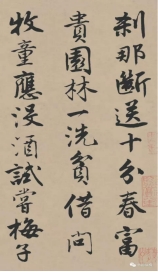 剎那斷送十分春富
貴園林一洗貧借問
牧童應沒酒試嘗梅子